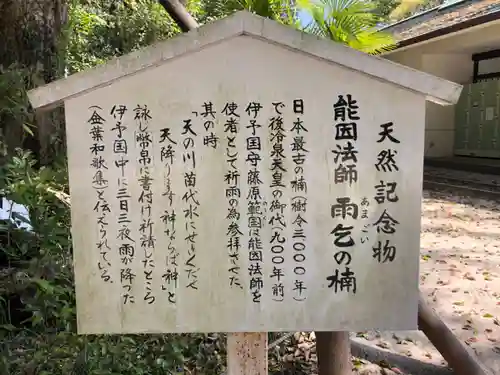 天然記念物
能因法師 雨乞の楠
あまごい
日本最古の楠 樹令三〇〇〇年
で後冷泉天皇の御代(九〇〇年前)
伊予国守藤原範国は能因法師を
使者として祈雨の為参拝させた
其の時
「天の川 苗代水にせきくだせ
天降ります神ならば神」と
詠し幣帛に書付け祈請したところ
伊予国中に三日三夜雨が降った
(金葉和歌集)と伝えられている。